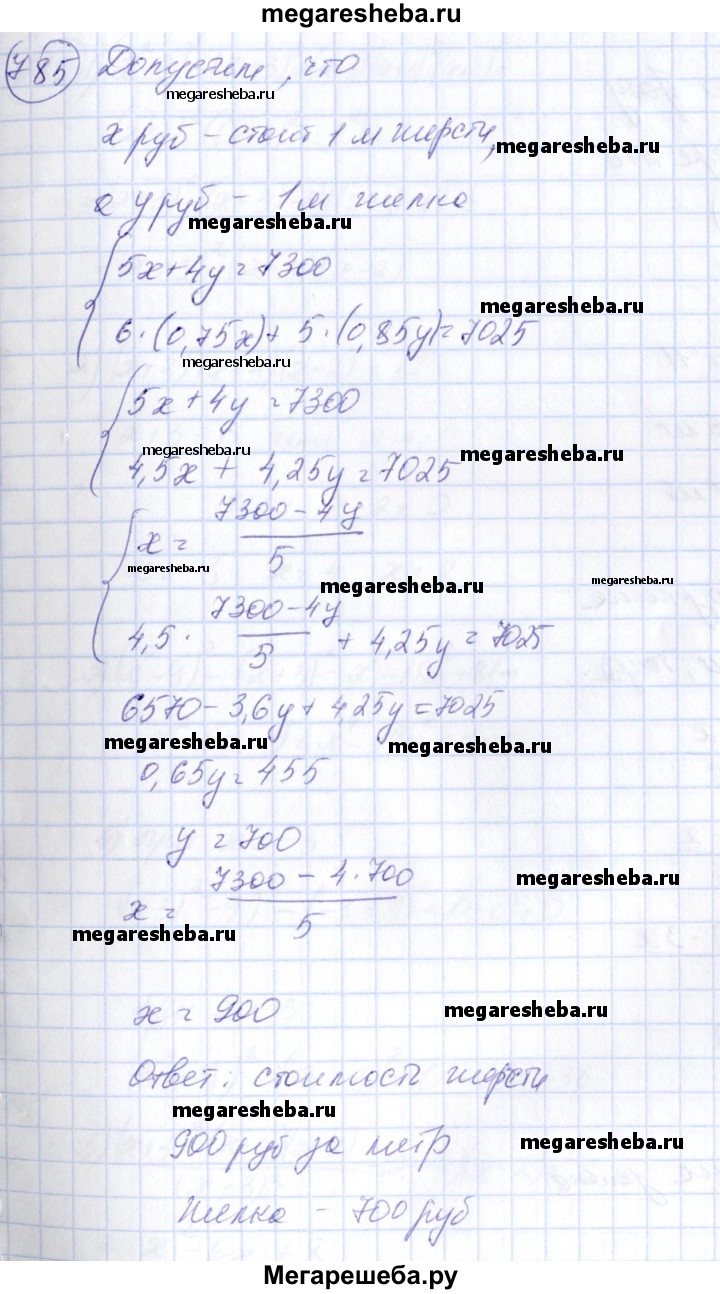 megaresheba.ru
785 Допустим, что
megaresheba.ru
x руб – стоит 1 м шерсти,
megaresheba.ru
а y руб – 1 м шелка
megaresheba.ru
5x+4y=7300
megaresheba.ru
6·(0,75x)+5·(0,85y)=7025
megaresheba.ru
5x+4y=7300
megaresheba.ru
megaresheba.ru
4,5x + 4,25y=7025
x = (7300-4y)/5
megaresheba.ru
megaresheba.ru
megaresheba.ru
4,5 · (7300-4y)/5 + 4,25y=7025
6570-3,6y+4,25y=7025
megaresheba.ru
megaresheba.ru
0,65y=455
y=700
x = (7300-4·700)/5
megaresheba.ru
megaresheba.ru
x=900
megaresheba.ru
Ответ: стоимость шерсти
megaresheba.ru
900 руб за метр
megaresheba.ru
шелка – 700 руб
Мегарешеба.ру